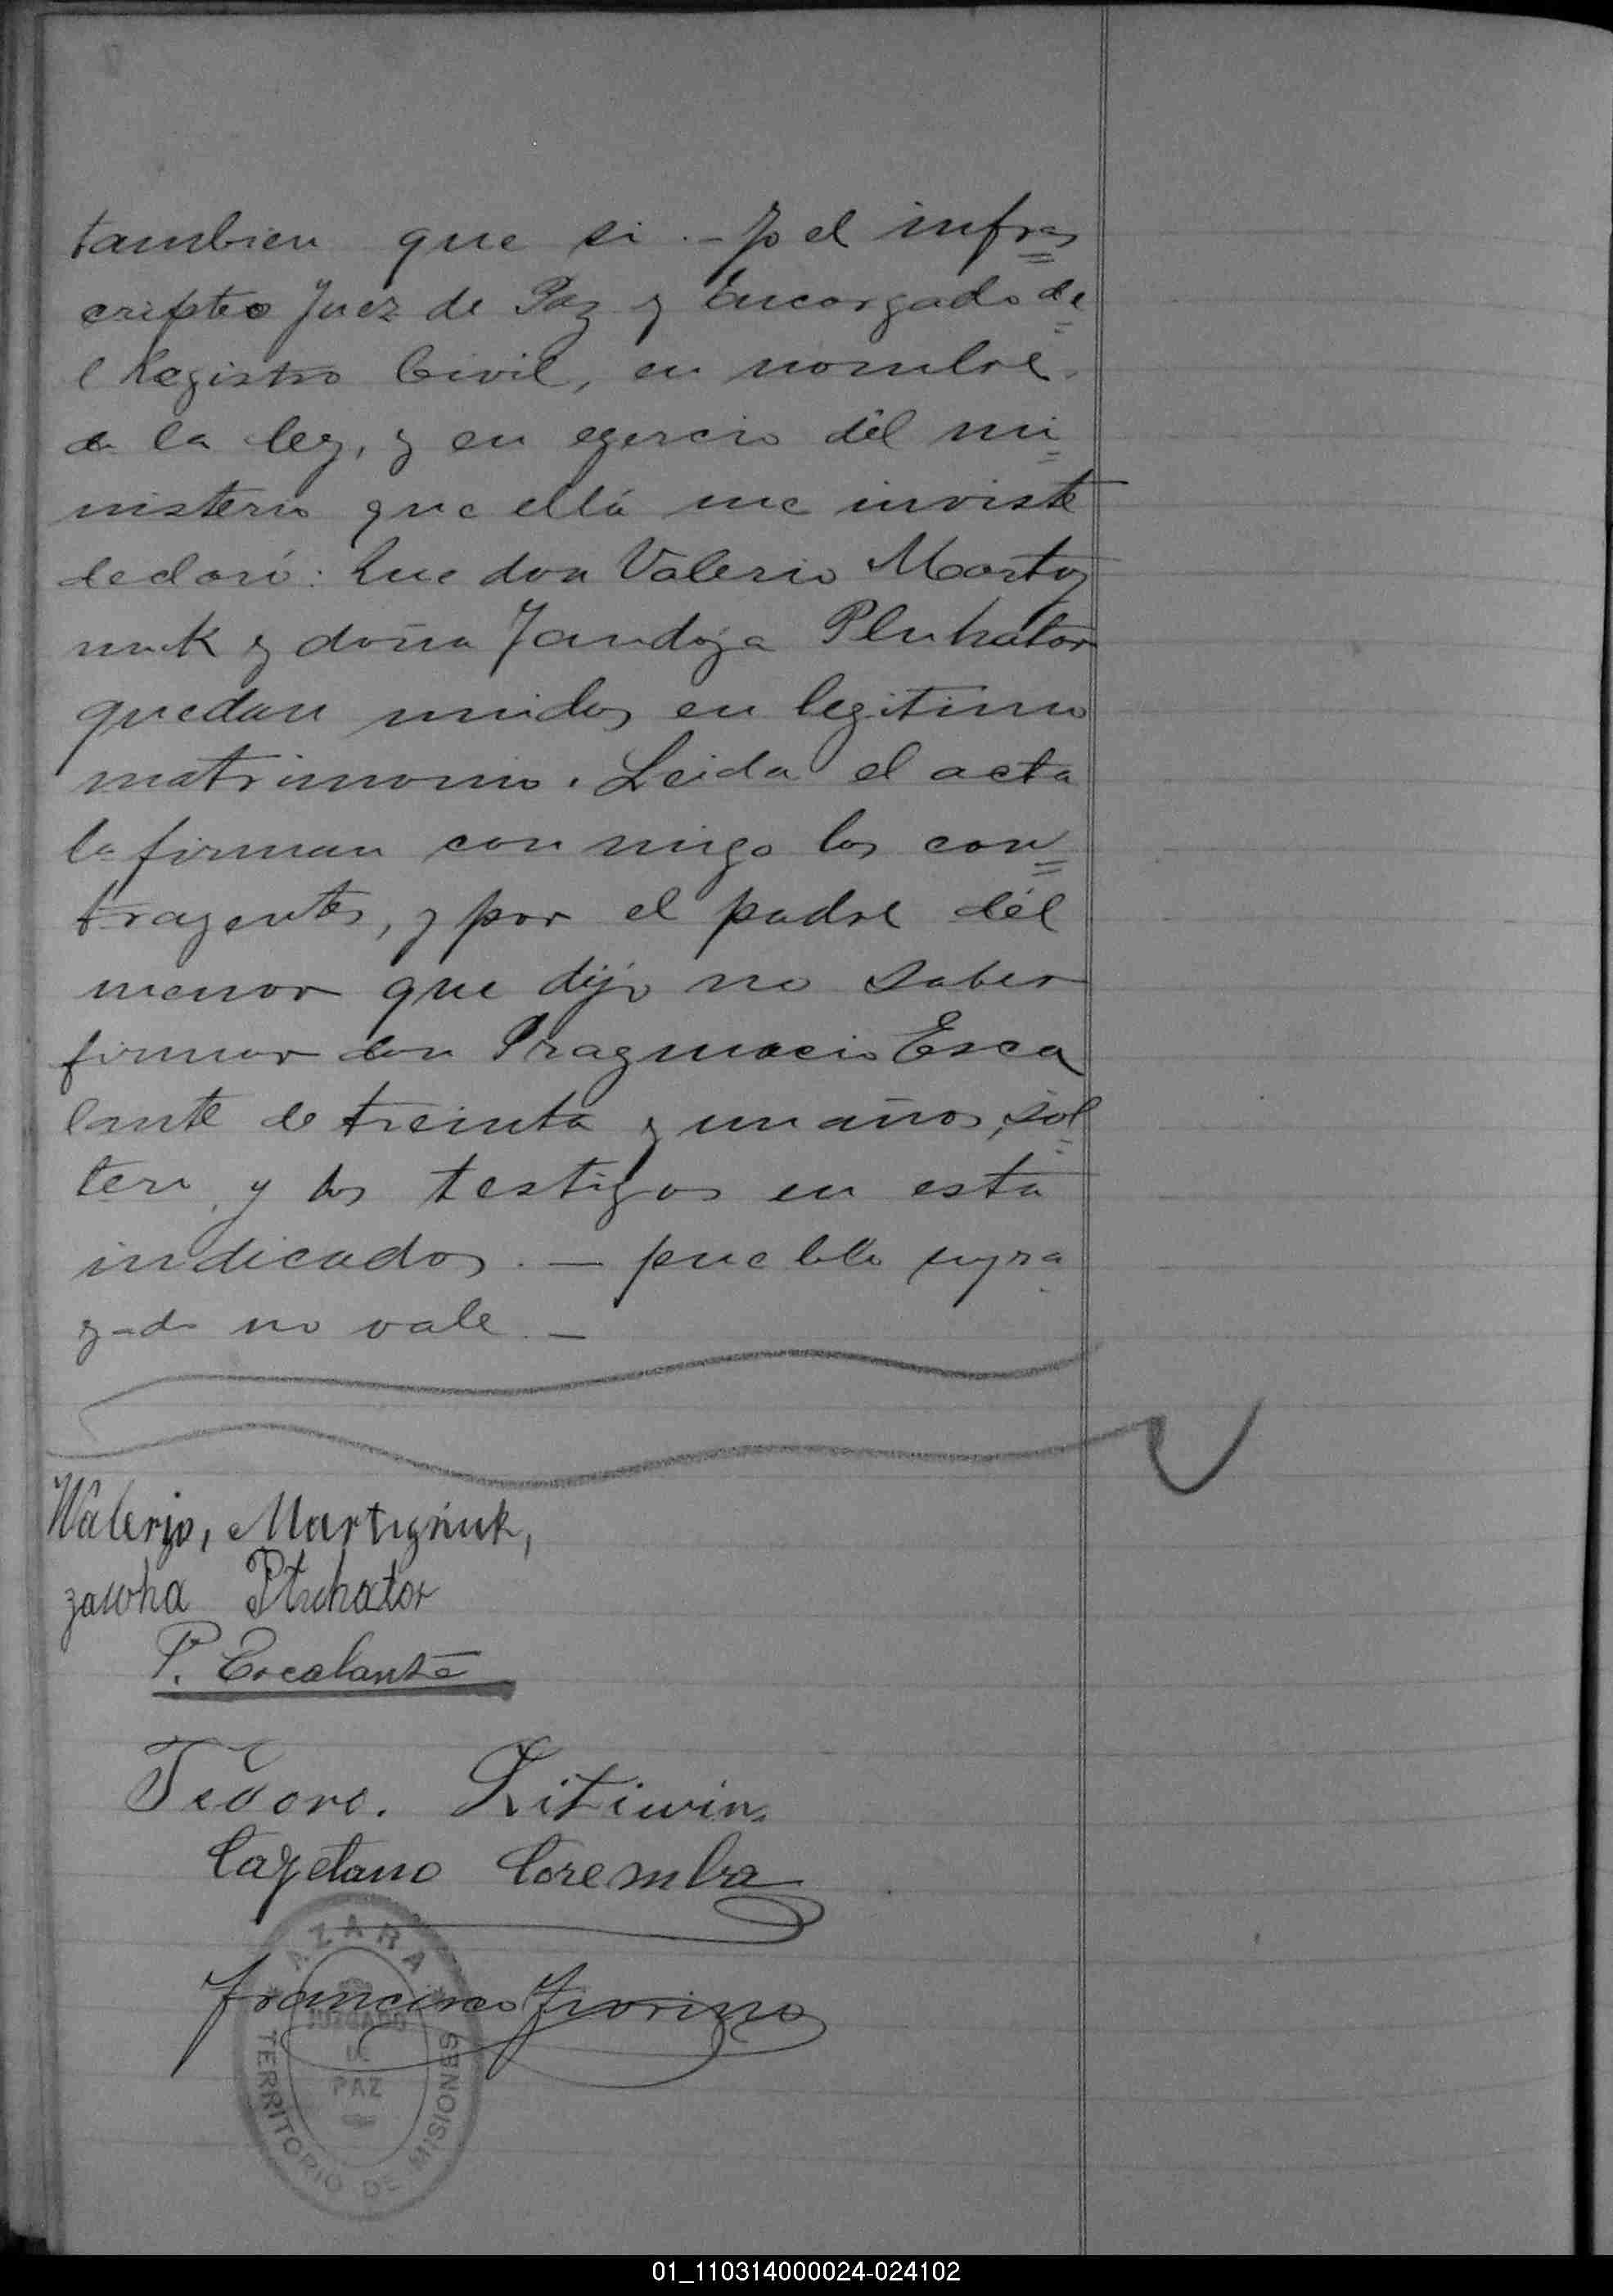 tambien que si.- Yo el infras
cripto Juez de Paz y Encargado de
l Registro Civil, en nombre
de la ley, y en egercio del mi
nisterio que ella me inviste
declaró: Que don Valerio Marty
nuk y doña Jandoja Pluhator
quedan unidos en legitimo
matrimonio. Leida el acta
la firman con migo los con
trayentes, y por el padre del
menor que dijo no saber
firmar don Pragmacio Esca
lante de treinta y un años, sol
tero, y los testigos en esta
indicados.- pueblo
no vale.-
Walerjo, Martyniuk,
Pluhator
P. Escalante
Teodoro. Litiwin
Cayetano Coremba
Francisco Fiorino
AZARA
JUZGADO
DE
PAZ
TERRITORIO DE MISIONES
01_110314000024-024102